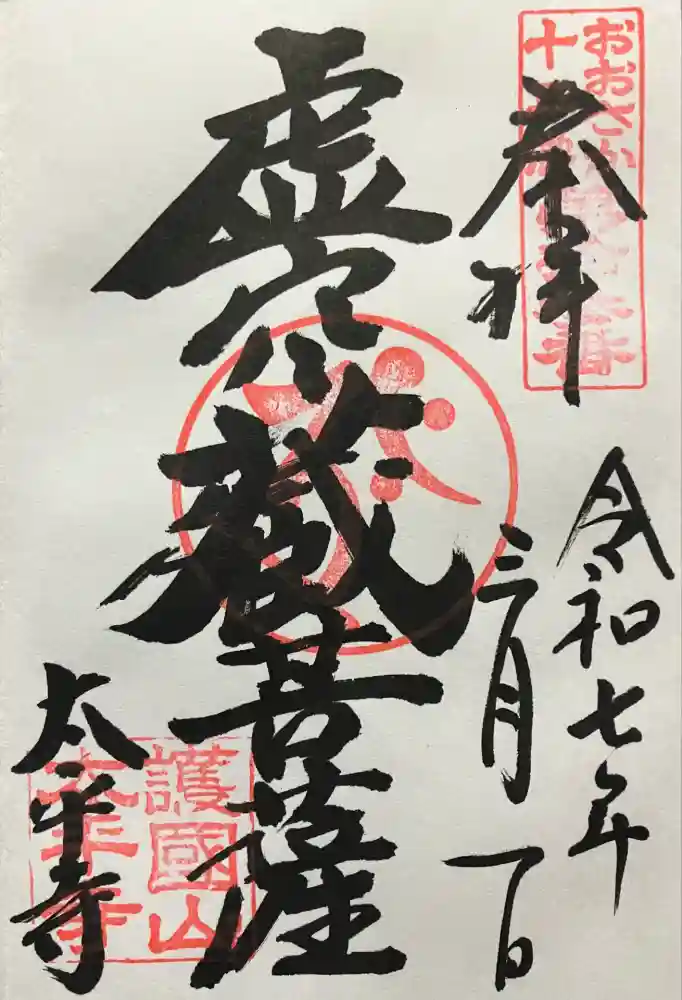 奉拝
令和七年
三月一日
虚空蔵菩薩
太平寺
おおさか
十三
護國山
太平寺